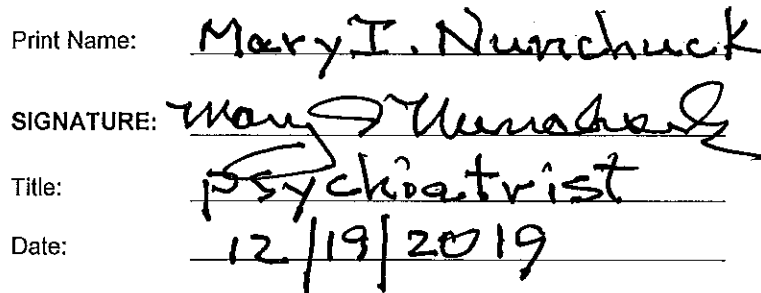 Print Name: Mary I. Nunchuck
SIGNATURE: Mary I Nunchuck
Title: psychiatrist
Date: 12/19/2019